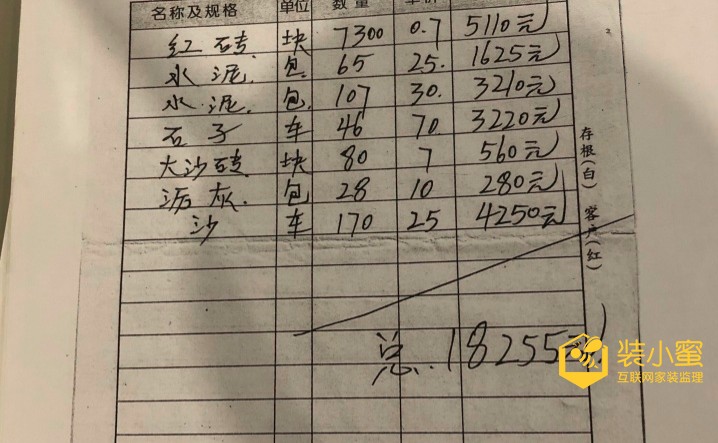 名称及规格 单位 数量 单价
红砖 块 7300 0.7 5110元
水泥. 包 65 25. 1625元
水泥. 包. 107 30. 3210元
石子 车 46 70 3220元
大沙砖 块 80 7 560元
沥灰. 包 28 10 280元
沙 车 170 25 4250元
总.. 18255元
存根(白) 客户(红)
装小蜜
互联网家装监理